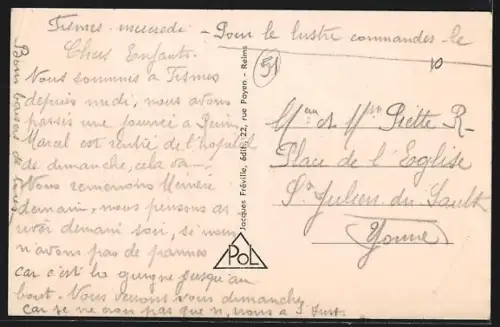 Fismes mercredi - Pour le lustre commandes le
Chers Enfants.
Nous sommes à Fismes
depuis midi, nous avons
passés une journée à Reims
Marcel est rentré de l'hopital
de dimanche, cela va
Nous remenons
demain, nous pensons
demain soir, si nous
n'avons pas de pannes
car c'est la guigne jusqu'au
bout. Nous verrons vous dimanche,
car je ne crois pas que n, nous a St Just
Bons baisers de tous
51
10
Jacques Fréville, édit. 22, rue Payen - Reims
POL
Mr et Mme Piette R-
Place de l'Eeglise
St Julien du Sault
Yonne